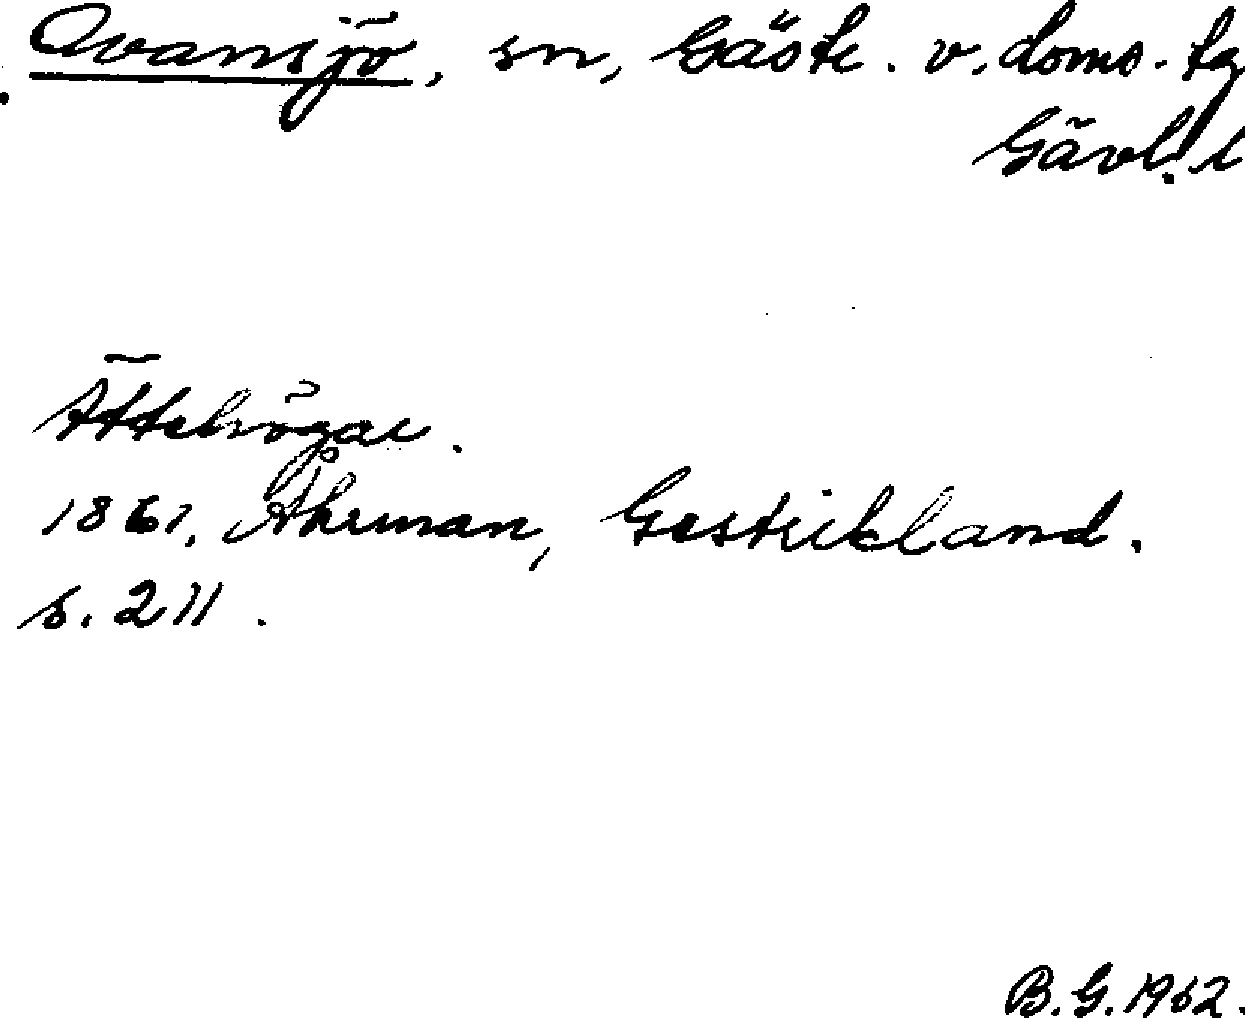 Ovansjö, sn, Gästr. v. doms. tg
Gävl. l
Ättehögar.
1861, Åkerman, Gestrikland.
s. 211.
B.G. 1962.